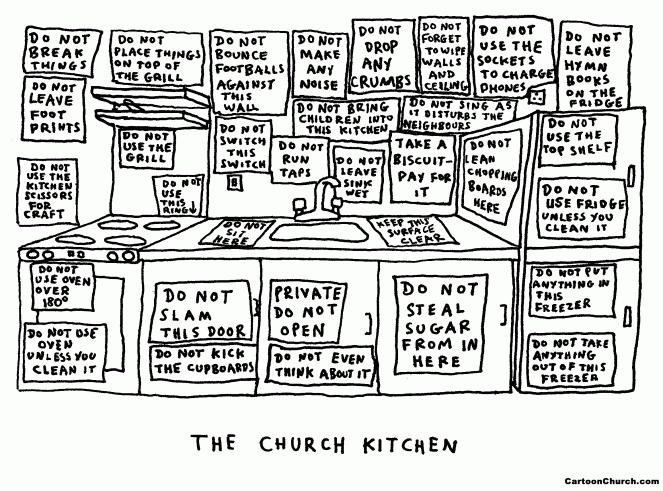 DO NOT
BREAK
THINGS
DO NOT
PLACE THINGS
ON TOP OF
THE GRILL
DO NOT
BOUNCE
FOOTBALLS
AGAINST
THIS
WALL
DO NOT
MAKE
ANY
NOISE
DO NOT
DROP
ANY
CRUMBS
DO NOT
FORGET
TO WIPE
WALLS
AND
CEILING
DO NOT
USE THE
SOCKETS
TO CHARGE
PHONES
DO NOT
LEAVE
HYMN
BOOKS
ON THE
FRIDGE
DO NOT
LEAVE
FOOT
PRINTS
DO NOT BRING
CHILDREN INTO
THIS KITCHEN
DO NOT SING AS
IT DISTURBS THE
NEIGHBOURS
DO NOT
USE THE
GRILL
DO NOT
SWITCH
THIS
SWITCH
DO NOT
RUN
TAPS
DO NOT
LEAVE
SINK
WET
TAKE A
BISCUIT-
PAY FOR
IT
DO NOT
LEAN
CHOPPING
BOARDS
HERE
DO NOT
USE THE
TOP SHELF
DO NOT
USE THE
KITCHEN
SCISSORS
FOR
CRAFT
DO NOT
USE
THIS
RING
DO NOT
SIT
HERE
KEEP THIS
SURFACE
CLEAR
DO NOT
USE FRIDGE
UNLESS YOU
CLEAN IT
DO NOT
USE OVEN
OVER
180°
DO NOT
SLAM
THIS DOOR
PRIVATE
DO NOT
OPEN
DO NOT
STEAL
SUGAR
FROM IN
HERE
DO NOT PUT
ANYTHING IN
THIS
FREEZER
DO NOT USE
OVEN
UNLESS YOU
CLEAN IT
DO NOT KICK
THE CUPBOARDS
DO NOT EVEN
THINK ABOUT IT
DO NOT TAKE
ANYTHING
OUT OF THIS
FREEZER
THE CHURCH KITCHEN
CartoonChurch.com